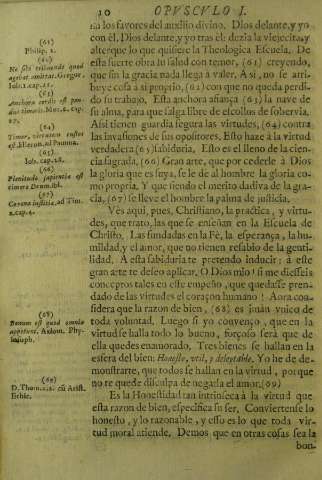 10 OPVSCVLO I.
(61)
Philip. 2.
(62)
Iob. 1. cap. 21.
(63)
(64)
Timor, virtutum custos
est. Hieron. ad
(65)
Iob. cap. 28.
(66)
Plenitudo sapientiæ est
timere Deum. ibi.
(67)
Corona iustitiæ, ad Tim.
2. cap. 4.
(68)
Bonum est quod omnia
appetunt. Axiom. Phy-
losoph.
(69)
D. Thom. 2. 2. cū Arist.
Ethic.
en los favores del auxilio divino. Dios delante, y yo
con èl. Dios delante, y yo tras èl: dezia la viejecita, y
altérque lo que quisiere la Theologica Escuela. De
esta fuerte obra tu salud con temor, (61) creyendo,
que sin la gracia nada llega à valer. A si, no se atri-
buye cosa à si propio, (62) con que no queda perdi-
do su trabajo. Esta anchora afiança (63) la nave de
su alma, para que salga libre de escollos de sobervia.
Assi tienen guarda segura las virtudes, (64) contra
las invasiones de sus opositores. Esto haze à la virtud
verdadera (65) sabiduria. Esto es el lleno de la cien-
cia sagrada. (66) Gran arte, que por cederle à Dios
la gloria que es suya, se le dè al hombre la gloria co-
mo propria. Y que siendo el merito dadiva de la gra-
cia, (67) se lleve el hombre la palma de justicia.
Vès aqui, pues, Christiano, la practica, y virtu-
des, que trato, las que se enseñan en la Escuela de
Christo. Las fundadas en la Fè, la esperança, la hu-
mildad, y el amor, que no tienen resabio de la genti-
lidad. A esta sabiduria te pretendo inducir; à este
gran arte te deseo aplicar. O Dios mio! si me diesseis
conceptos tales en este empeño, que quedasse pren-
dado de las virtudes el coraçon humano! Aora coa-
sidera que la razon de bien, (68) es iman vnico de
toda voluntad. Luego si yo convenço, que en la
virtud se halla todo lo bueno, forçoso serà que de
ella quedes enamorado. Tres bienes se hallan en la
esfera del bien: Honesto, vtil, y delectable. Yo he de de-
monstrarte, que todos se hallan en la virtud, porque
no te quede disculpa de negarla el amor. (69)
Es la Honestidad tan intrinseca à la virtud que
esta razon de bien, especifica su ser. Conviertense lo
honesto, y lo razonable, y esso es lo que toda vir-
tud moral atiende. Demos que en otras cosas sea la
bon-